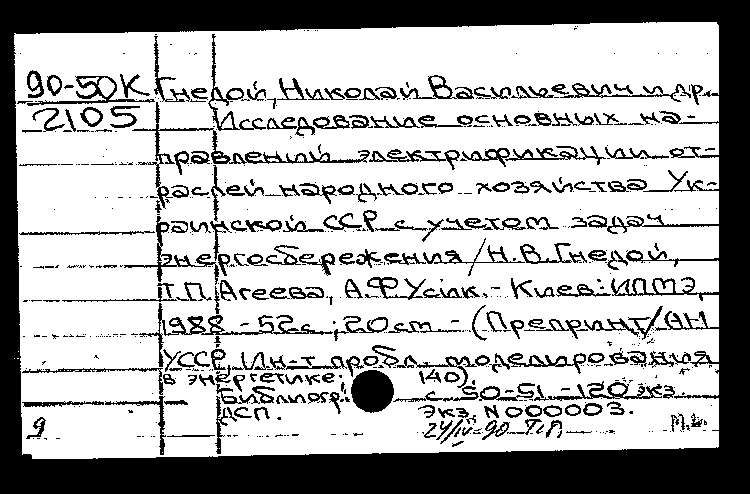 90-50К Гнедой, Николай Васильевич и др.
2105 Исследование основных на-
правлений электрификации от-
раслей народного хозяйства Ук-
раинской ССР с учетом задач
энергосбережения / Н.В. Гнедой,
Т.П. Агеева, А.Ф Усік. - Киев: ИПМЭ,
1988 - 52с ; 20 cm - (Препринт / АН
УССР, Ин-т пробл. моделирования
в энергетике; 140).
Библиогр.: с 50-51 - 120 экз.
ДСП. Экз. N 000003.
9 24/IV-90 М.Б.